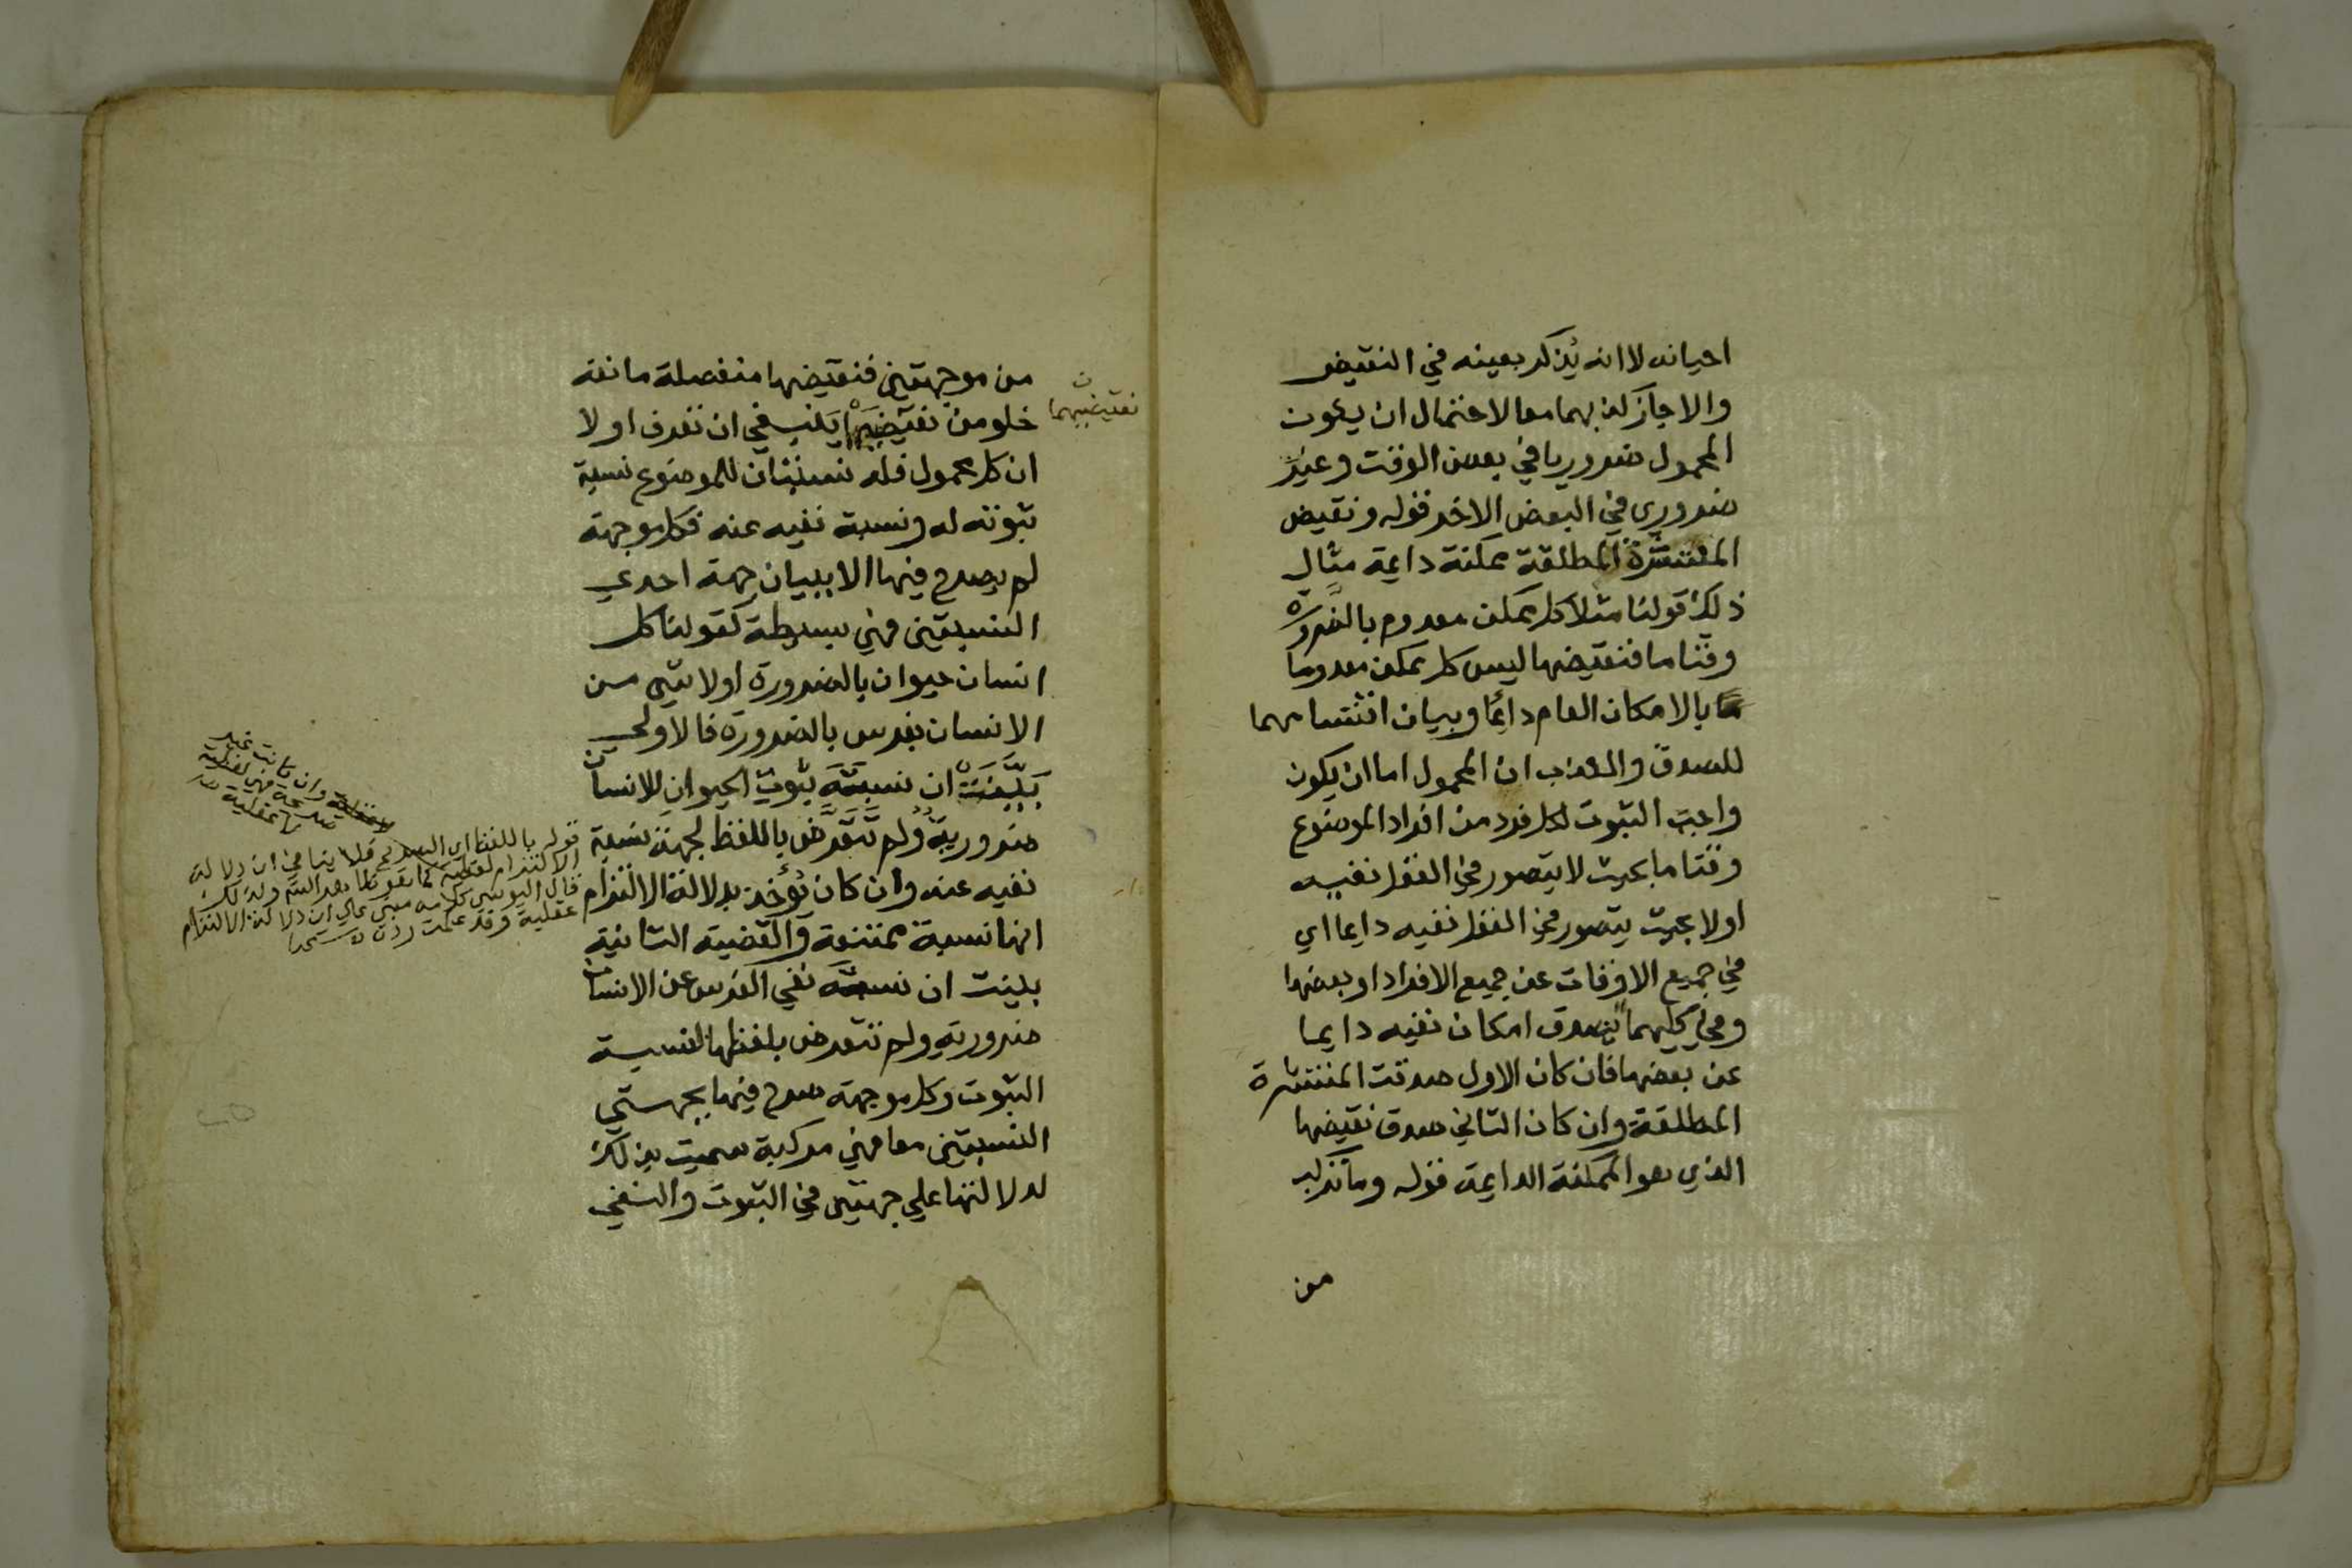 احيانه لا انه يذكر بعينه في النقيض
والا جاز كذبهما معا لاحتمال ان يكون
المحمول ضروريا في بعض الوقت وغير
ضروري في البعض الاخر قوله ونقيض
المنتشرة المطلقة ممكنة دايمة مثال
ذلك قولنا مثلا كل ممكن معدوم بالضرورة
وقتا ما فنقيضها ليس كل ممكن معدوما
بالامكان العام دائما وبيان اقتسامهما
للصدق والكذب ان المحمول اما ان يكون
واجب الثبوت لكل فرد من افراد الموضوع
وقتا ما بحيث لا يتصور في العقل نفيه
اولا بحيث يتصور في العقل نفيه دايما اي
في جميع الاوقات عن جميع الافراد او بعضها
وفي كليهما يصدق امكان نفيه دايما
عن بعضها فان كان الاول صدقت المنتشرة
المطلقة وان كان الثاني صدق نقيضها
الذي هو الممكنة الدايمة قوله وما تركب
من
من موجهتين فنقيضها منفصلة مانعة
خلو من نقيضيهما ينبغي ان تعرف اولا
نقيضيهما ن
ان كل محمول فله نسبتان للموضوع نسبة
ثبوته له ونسبة نفيه عنه فكل موجهة
لم يصرح فيها الا ببيان جهة احدي
النسبتين فهي بسيطة كقولنا كل
انسان حيوان بالضرورة او لا شي من
الانسان بفرس بالضرورة فالاولي
بينت ان نسبة ثبوت الحيوان للانسان
ضرورية ولم تتعرض باللفظ لجهة نسبة
نفيه عنه وان كان يؤخذ بدلالة الالتزام
انها نسبة ممتنعة والقضية الثانية
بينت ان نسبة نفي الفرس عن الانسان
ضرورية ولم تتعرض بلفظها لنسبة
الثبوت وكل موجهة صرح فيها بجهتي
النسبتين معا فهي مركبة سميت بذلك
لدلالتها علي جهتين في الثبوت والنفي
وان كانت غير
صريحة فهي لفظية
لا عقلية
قوله باللفظ اي الصريح فلا ينافي ان دلالة
الالتزام لفظية
قال اليوسي كلامه مبني علي ان دلالة الالتزام
عقلية وقد علمت رده